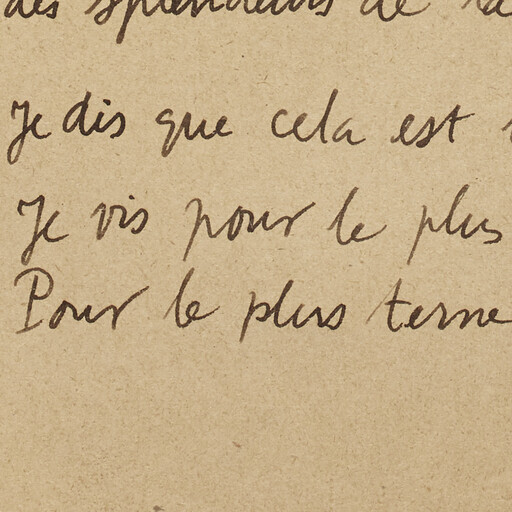 des splendeurs de la
Je dis que cela est
Je vis pour le plus
Pour le plus terne